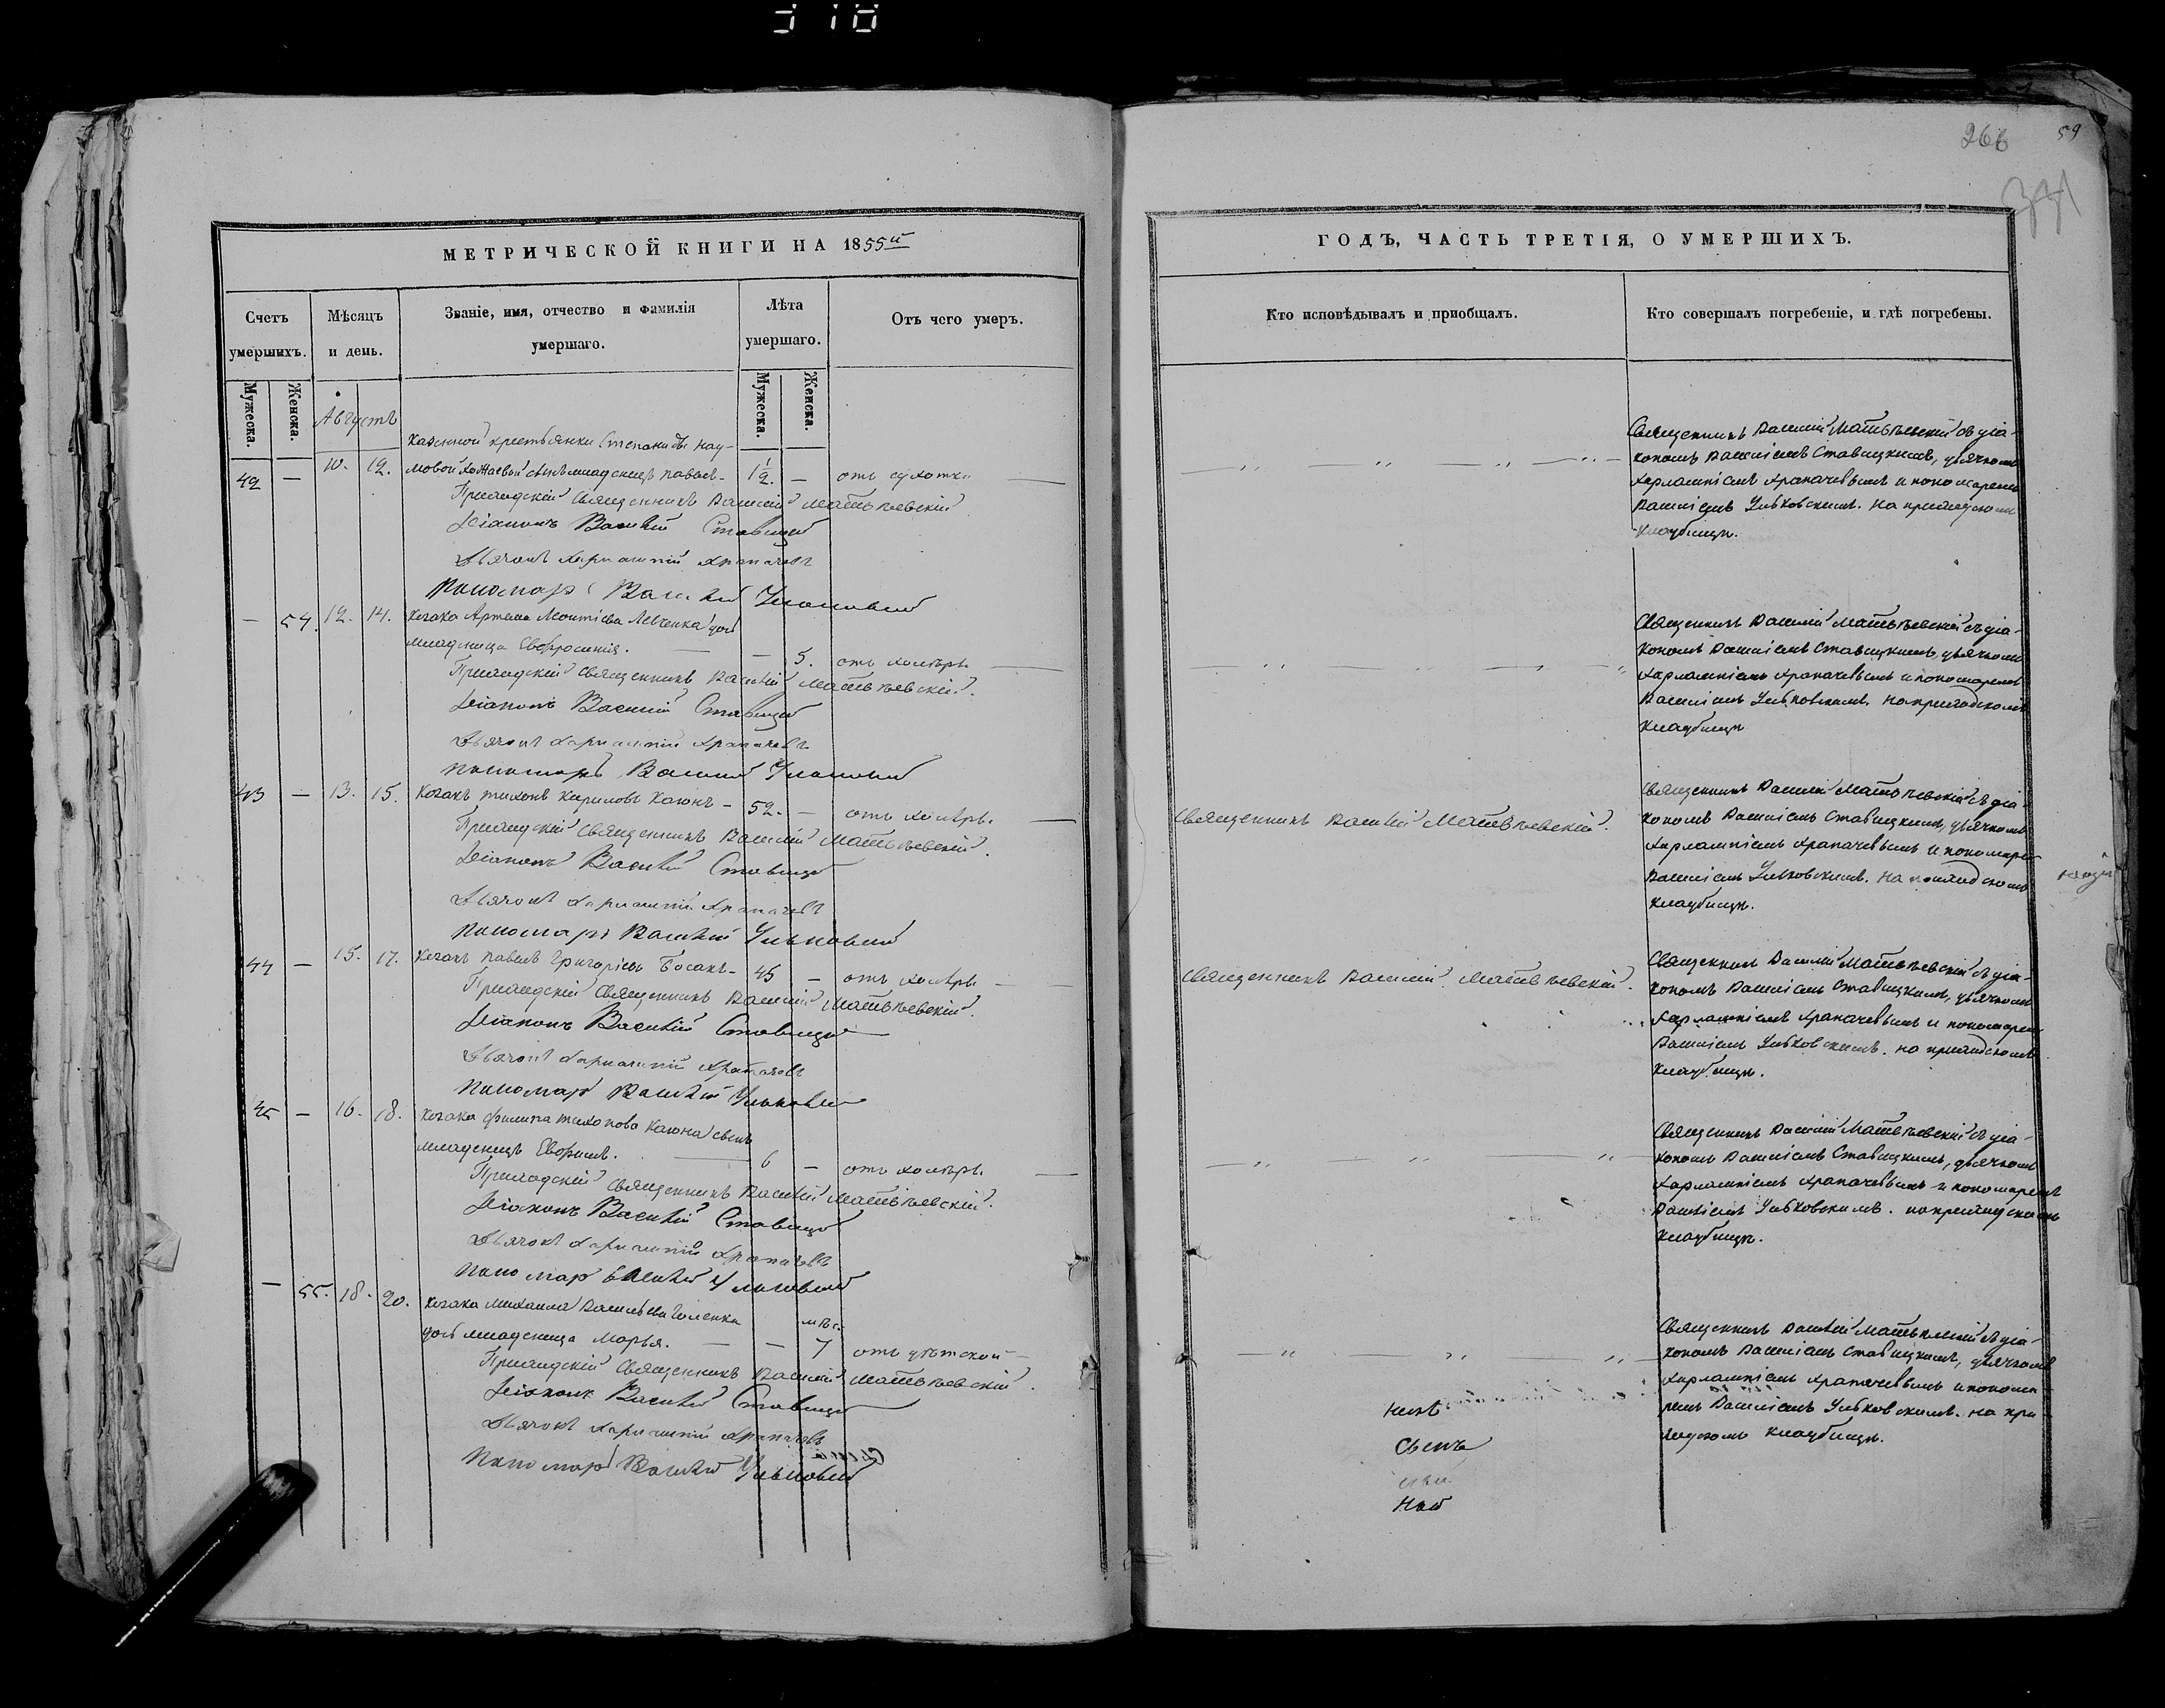 310
266
59
331
МЕТРИЧЕСКОЙ КНИГИ НА 1855й
Счетъ умершихъ.
Мѣсяцъ и день.
Званіе, имя, отчество и фамилія умершаго.
Лѣта умершаго.
Отъ чего умеръ.
Мужеска.
Женска.
Мужеска.
Женска.
Августъ
казенной крестьянки Степаниды Нау-
42 — 10. 12. мовой сынъ младенецъ Павелъ - 1½. — отъ сухотки
Приходскій Священникъ Василій Матвѣевскій
Діаконъ Василій Ставицкій
Дьячокъ Харлампій Храпачевъ
Пономарь Василій Ульковскій
— 54. 12. 14. Козака Артема Леонтіева Левченка дочь
младеница Евфросинія. — 5. отъ холеры
Приходскій Священникъ Василій Матвѣевскій.
Діаконъ Василій Ставицкій
Дьячокъ Харлампій Храпачевъ
Пономарь Василій Ульковскій
43 — 13. 15. Козакъ Тихонъ Кириловъ Каюнъ - 52. — отъ холеры.
Приходскій Священникъ Василій Матвѣевскій.
Діаконъ Василій Ставицкій
Дьячокъ Харлампій Храпачевъ
Пономарь Василій Ульковскій
44 — 15. 17. Козакъ Павелъ Григоріевъ Босакъ - 45 — отъ холеры
Приходскій Священникъ Василій Матвѣевскій.
Діаконъ Василій Ставицкій
Дьячокъ Харлампій Храпачевъ
Пономарь Василій Ульковскій
45 — 16. 18. Козака Филипа Тихонова Каюна сынъ
младенецъ Ефримъ. 6 — отъ холеры.
Приходскій Священникъ Василій Матвѣевскій.
Діаконъ Василій Ставицкій
Дьячокъ Харлампій Храпачевъ
Пономарь Василій Ульковскій
— 55. 18. 20. Козака Михаила Васильева мѣс.
дочь младеница Марья. — — 7 отъ дѣтской
Приходскій Священникъ Василій Матвѣевскій.
Діаконъ Василій Ставицкій
Дьячокъ Харлампій Храпачевъ
Пономарь Василій Ульковскій
ГОДЪ, ЧАСТЬ ТРЕТІЯ, О УМЕРШИХЪ.
Кто исповѣдывалъ и пріобщалъ.
Кто совершалъ погребеніе, и гдѣ погребены.
Священникъ Василій Матвѣевскій съ діа-
кономъ Василіемъ Ставицкимъ, дьячкомъ
Харлампіемъ Храпачевымъ и пономаремъ
Василіемъ Ульковскимъ. на приходскомъ
кладбищѣ.
Священникъ Василій Матвѣевскій съ діа-
кономъ Василіемъ Ставицкимъ, дьячкомъ
Харлампіемъ Храпачевымъ и пономаремъ
Василіемъ Ульковскимъ. на приходскомъ
кладбищѣ
Священникъ Василій Матвѣевскій.
Священникъ Василій Матвѣевскій съ діа-
кономъ Василіемъ Ставицкимъ, дьячкомъ
Харлампіемъ Храпачевымъ и пономаре
Василіемъ Ульковскимъ. на приходскомъ
кладбищѣ.
Священникъ Василій Матвѣевскій.
Священникъ Василій Матвѣевскій съ діа-
кономъ Василіемъ Ставицкимъ, дьячкомъ
Харлампіемъ Храпачевымъ и пономарем
Василіемъ Ульковскимъ. на приходскомъ
кладбищѣ.
Священникъ Василій Матвѣевскій съ діа-
кономъ Василіемъ Ставицкимъ, дьячкомъ
Харлампіемъ Храпачевымъ и пономаремъ
Василіемъ Ульковскимъ. на приходскомъ
кладбищѣ.
Священникъ Василій Матвѣевскій съ діа-
кономъ Василіемъ Ставицкимъ, дьячкомъ
Харлампіемъ Храпачевымъ и понома-
ремъ Василіемъ Ульковскимъ. на при-
ходскомъ кладбищѣ.
Сынъ